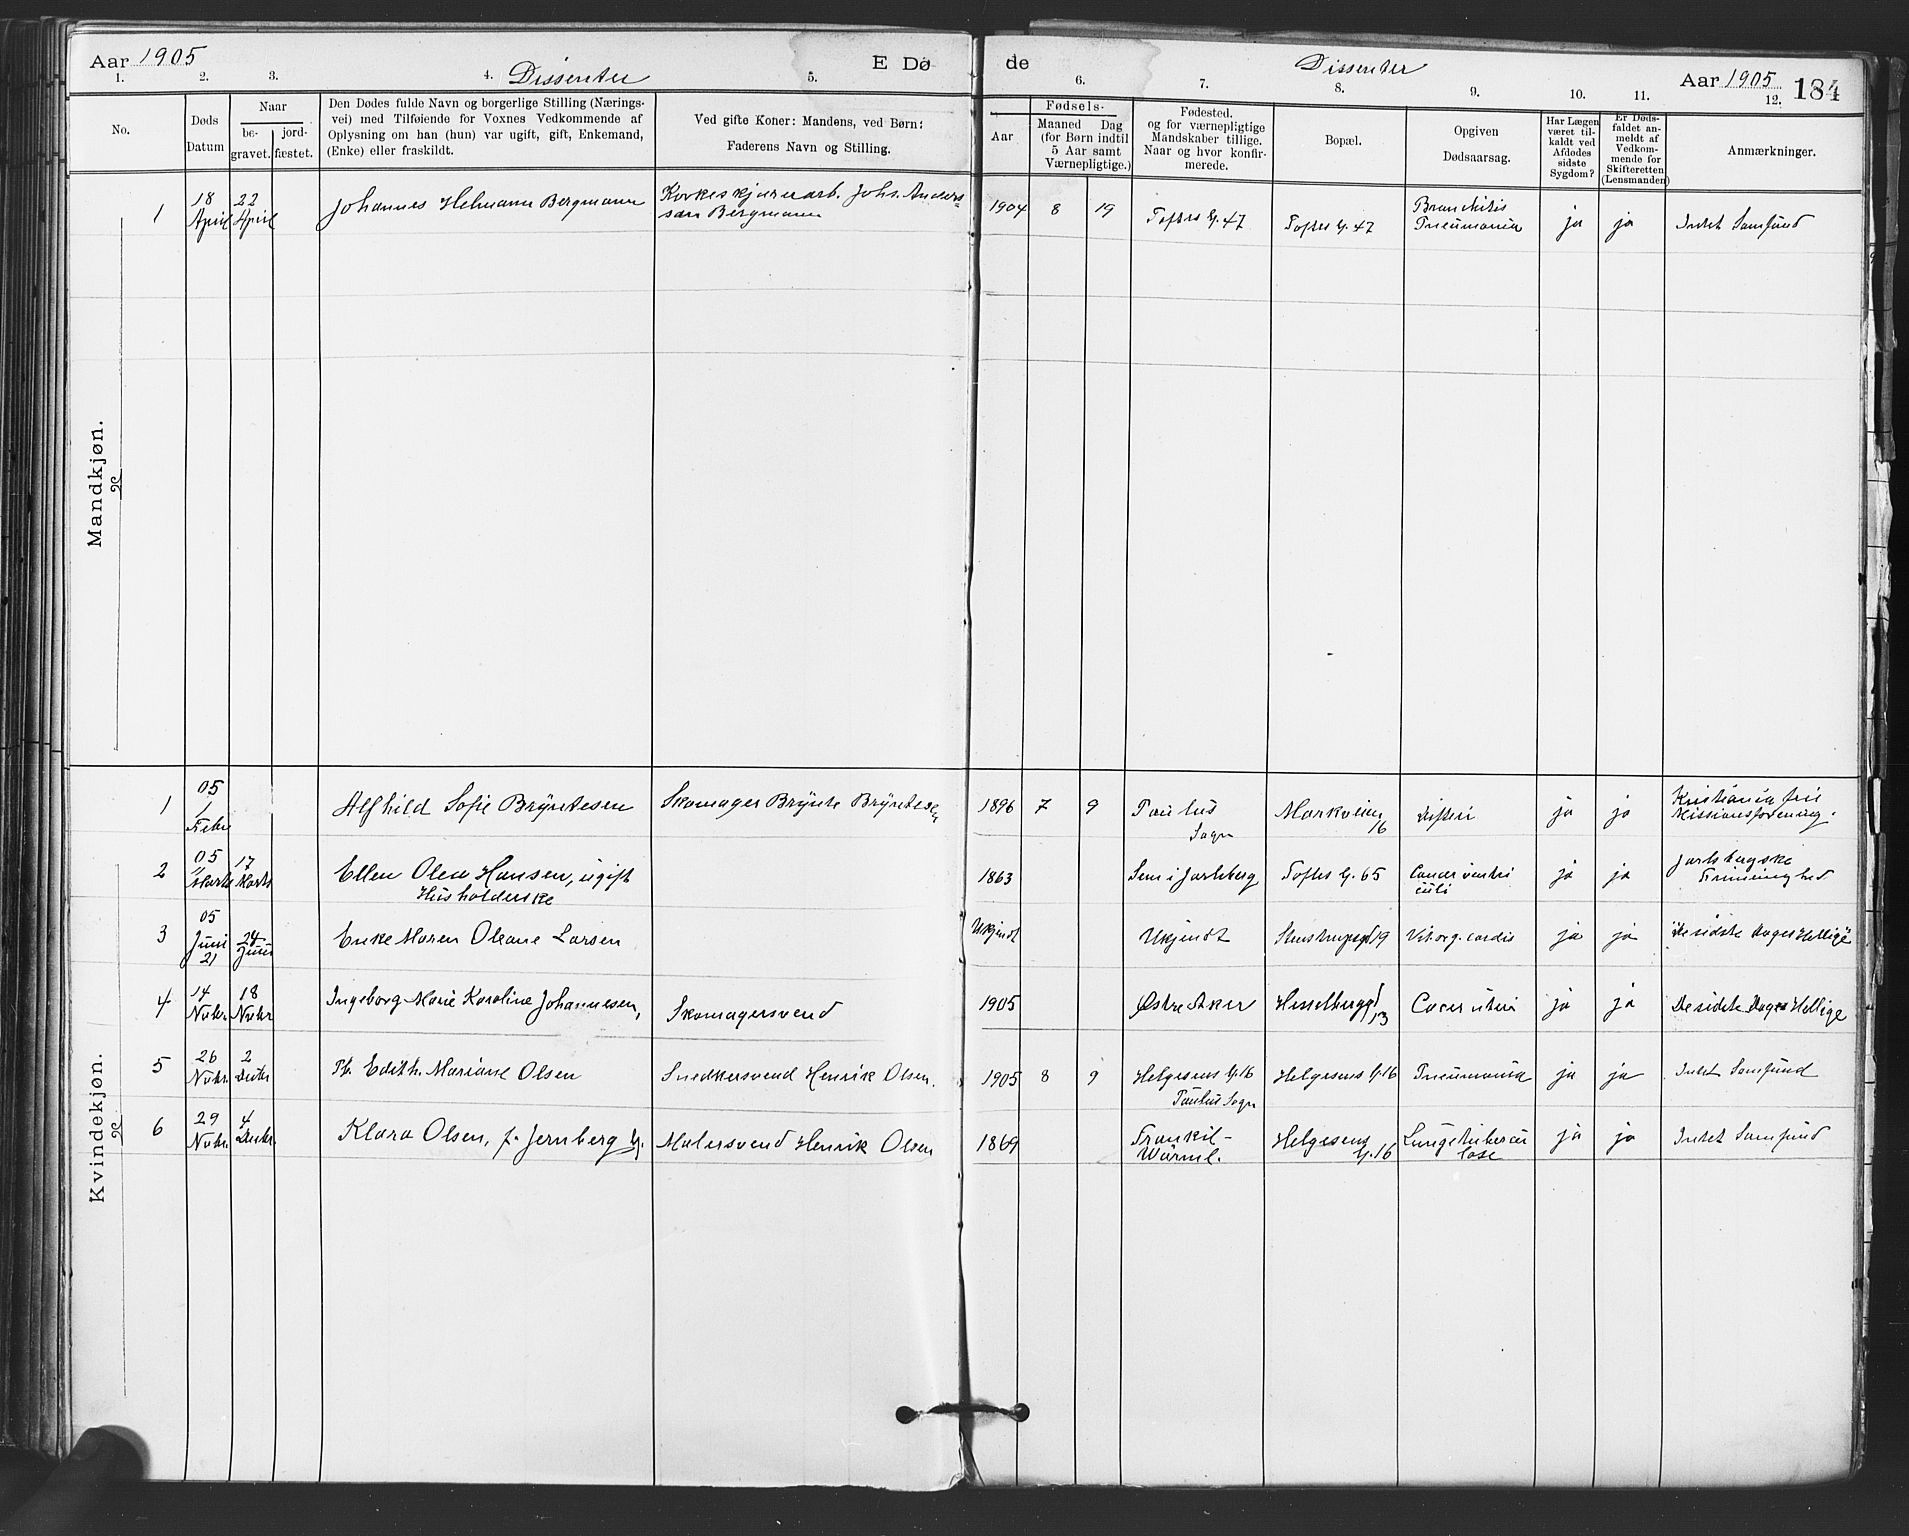 Aar 1905
E Dø
de
Aar 1905
184
1. 2. 3. 4. Dissenter 5. 6. 7. Dissenter 8. 9. 10. 11. 12.
No.
Døds
Datum
Naar
be-
gravet.
jord-
fæstet.
Den Dødes fulde Navn og borgerlige Stilling (Nærings-
vei) med Tilføiende for Voxnes Vedkommende af
Oplysning om han (hun) var ugift, gift, Enkemand,
(Enke) eller fraskildt.
Ved gifte Koner: Mandens, ved Børn:
Faderens Navn og Stilling.
Fødsels-
Aar
Maaned Dag
(for Børn indtil
5 Aar samt
Værnepligtige.)
Fødested.
og for værnepligtige
Mandskaber tillige.
Naar og hvor konfir-
merede.
Bopæl.
Opgiven
Dødsaarsag.
Har Lægen
været til-
kaldt ved
Afdødes
sidste
Sygdom?
Er Døds-
faldet an-
meldt af
Vedkom-
mende for
Skifteretten
(Lensmanden)
Anmærkninger.
Mandkjøn.
1
18
April
22
April
Johannes Helmann Bergmann
Korkeskjærerarb. Johs. Anders-
son Bergmann
1904 8 19
Toftes g. 47
Toftes g. 47
Bronchitis
Pneumonia
ja
ja
Intet Samfund
Kvindekjøn.
1
05
1
Febr
Alfhild Sofie Bryntesen
Skomager Brynte Bryntesen
1896 7 9
Paulus
Sogn
Markveien
16
Difteri
ja
ja
Kristiania fri
Missionsforening.
2
05
Marts
17
Marts
Ellen Olea Hansen, ugift
Husholderske
1863
Sem i Jarlsberg
Toftes g. 65
Cancer ventri
culi
ja
ja
Jarlsbergske
Frimenighed
3
05
Juni
21
24
Juni
Enke Maren Oleane Larsen
Ukjendt
Ukjendt
Stenstrupsgd 19
Vit. org. cordis
ja
ja
"De sidste Dages Hellige"
4
14
Novbr.
18
Novbr
Ingeborg Marie Karoline Johannesen,
Skomagersvend
1905
Østre Aker
Hesselbergg
13
Cancer uteri
ja
ja
De sidste Dages Hellige
5
26
Novbr.
2
Decbr
Edith Mariane Olsen
Snedkersvend Henrik Olsen.
1905 8 9
Helgesens g. 16
Paulus Sogn
Helgesens g. 16
Pneumonia
ja
ja
Intet Samfund
6
29
Novbr.
4
Decbr.
Klara Olsen, f. Jernberg g.
Malersvend Henrik Olsen
1869
Frankil-
Wärml.
Helgesens
g. 16
Lungetubercu
lose
ja
ja
Intet Samfund